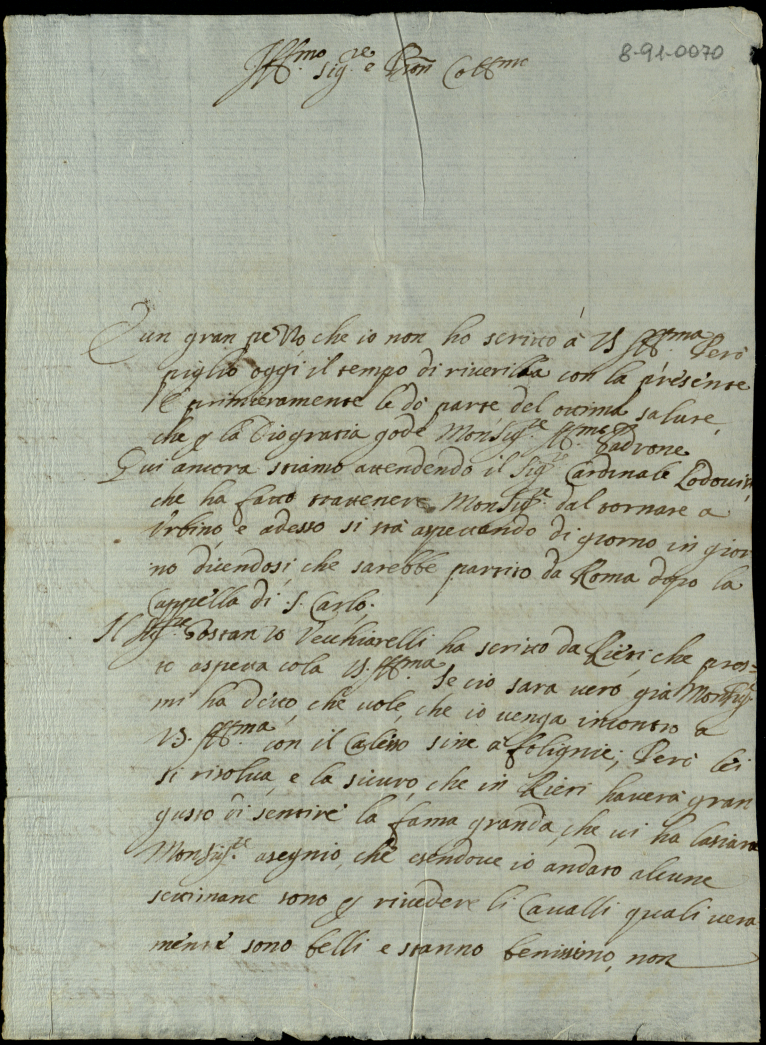 8-91-0070
Ill.mo Sig.re e Pron Coll.mo
È un gran pezzo che io non ho scritto à VS Ill.ma Però
piglio oggi il tempo di riverirla con la presente
E primieramente le dò parte del ottima salute,
che p la Diogratia gode MonSig.re Ill.mo Padrone
Qui ancora stiamo attendendo il Sig.r Cardinale Lodovisi
che ha fatto trattenere MonSig.re dal tornare a
Urbino e adesso si stà aspettando di giorno in gior
no dicendosi che sarebbe partito da Roma dopo la
Cappella di S. Carlo;
Il Sig.re Gostanzo Vecchiarelli ha scritto da Rieti, che pres=
to aspetta cola VS. Ill.ma Se cio sara vero già MonSig.re
mi ha detto, che vole, che io venga incontro a
VS. Ill.ma con il Calesso sine a folignie; Però lei
si risolva, e la sicuro, che in Rieti haverà gran
gusto di sentire la fama granda, che vi ha lasciata
MonSig.re asegnio, che esendove io andato alcune
settimane sono p rivedere li Cavalli quali vera
mente sono belli e stanno benissimo, non